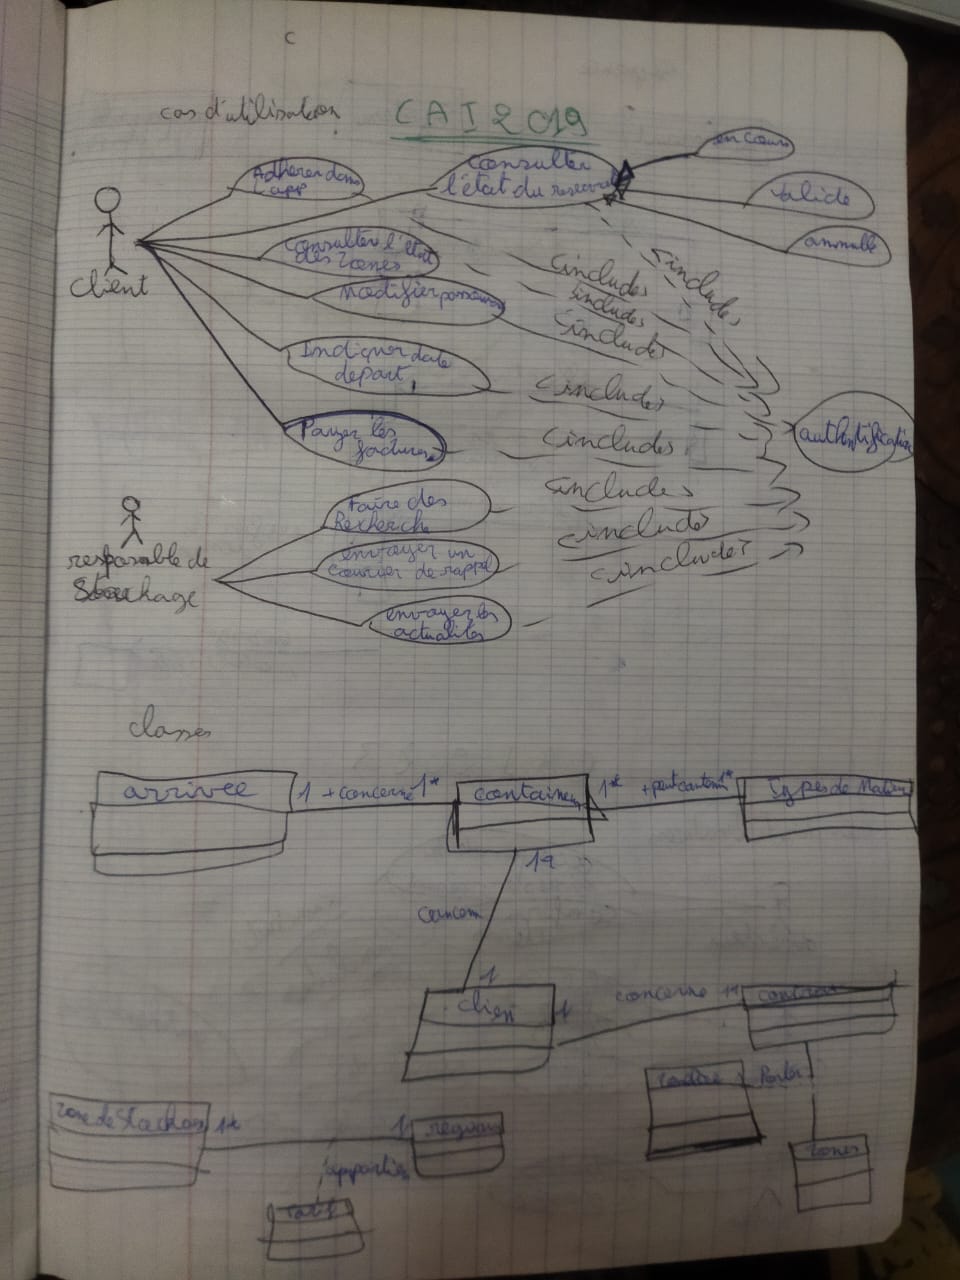 c
cas d'utilisation
CAI 2019
Adherer dans
l'app
Consulter
l'état du reservat
en cours
valide
annulé
client
Consulter l'état
des zones
Modifier
Indiquer date
depart
Payer les
factures
<includes
<includes
<includes
<includes
<includes
<includes
<includes
<includes
<includes
authentification
responsable de
Stockage
Faire des
Recherche
envoyer un
courier de rappel
envoyer les
actualités
classes
arrivée
1 + concerne 1*
container
1* + peut contenir 1*
Types de Matier
1*
concern
1
client
1
concerne 1*
contrat
zone de Stockage
1*
1
region
appartien
tarif
zones